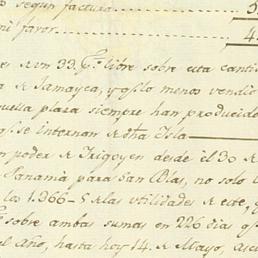 segun factura
mi favor
33 libre sobre esta canti
de Jamayca, y qe lo menos vendio
uella plaza siempre han producido
qe se internan en dha Isla
n poder de Trigoyen desde el 30 de
Panamá para San Blas, no solo l
los 1.966-5 de las utilidades de este, y
sobre ambas sumas en 226 dias qe
el Año, hasta hoy 14 de Mayo, asc